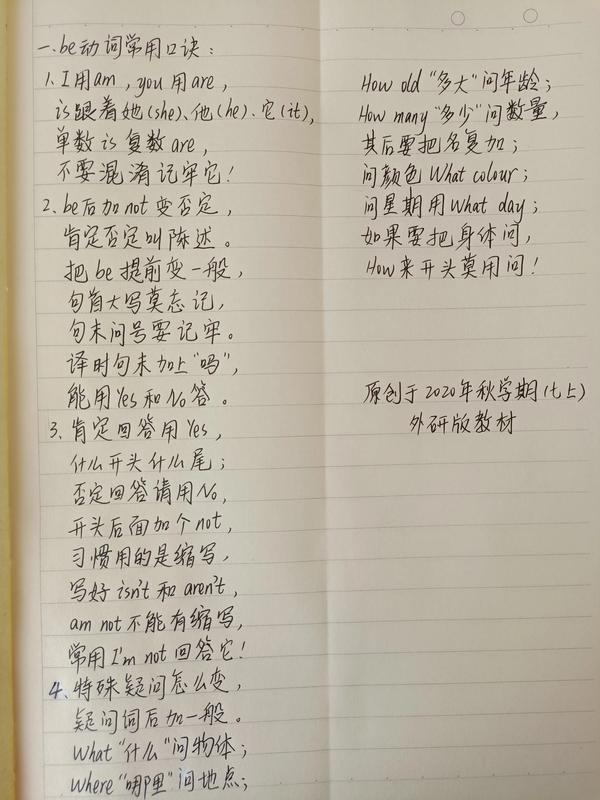 一.be动词常用口诀：
1. I用am，you用are，
is跟着她(she)、他(he)、它(it)，
单数is复数are，
不要混淆记牢它！
2. be后加not变否定，
肯定否定叫陈述。
把be提前变一般，
句首大写莫忘记，
句末问号要记牢。
译时句末加上“吗”，
能用Yes和No答。
3. 肯定回答用Yes，
什么开头什么尾；
否定回答请用No，
开头后面加个not，
习惯用的是缩写，
写好isn't和aren't，
am not不能有缩写，
常用I'm not回答它！
4. 特殊疑问怎么变，
疑问词后加一般。
What“什么”问物体；
Where“哪里”问地点；
How old“多大”问年龄；
How many“多少”问数量，
其后要把名复加；
问颜色What colour；
问星期用What day；
如果要把身体问，
How来开头莫用问！
原创于2020年秋学期(七上)
外研版教材